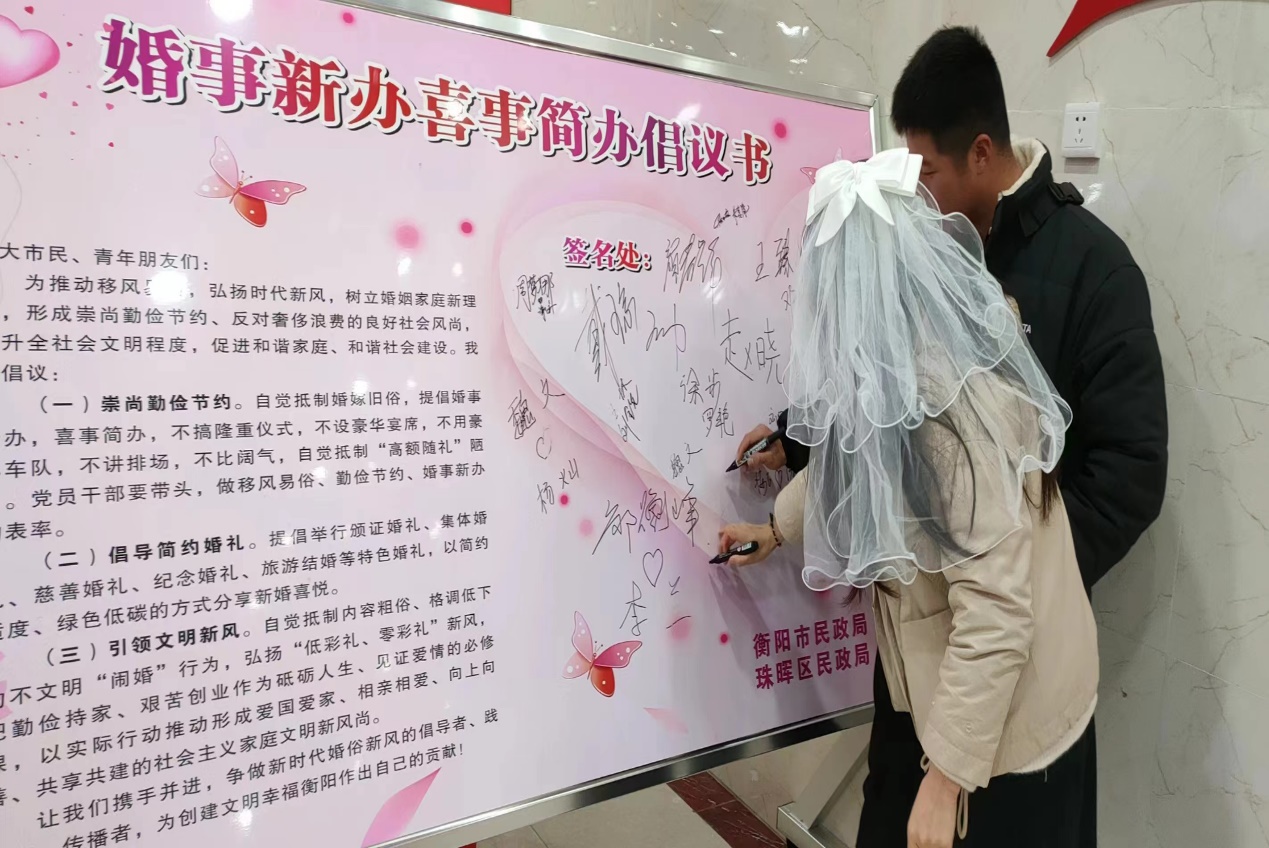 婚事新办喜事简办倡议书
大市民、青年朋友们：
为推动移风易，弘扬时代新风，树立婚姻家庭新理
，形成崇尚勤俭节约、反对奢侈浪费的良好社会风尚，
升全社会文明程度，促进和谐家庭、和谐社会建设。我
倡议：
（一）崇尚勤俭节约。自觉抵制婚嫁旧俗，提倡婚事
办，喜事简办，不搞隆重仪式，不设豪华宴席，不用豪
车队，不讲排场，不比阔气，自觉抵制“高额随礼”陋
。党员干部要带头，做移风易俗、勤俭节约、婚事新办
表率。
（二）倡导简约婚礼。提倡举行颁证婚礼、集体婚
、慈善婚礼、纪念婚礼、旅游结婚等特色婚礼，以简约
适度、绿色低碳的方式分享新婚喜悦。
（三）引领文明新风。自觉抵制内容粗俗、格调低下
的不文明“闹婚”行为，弘扬“低彩礼、零彩礼”新风，
把勤俭持家、艰苦创业作为砥砺人生、见证爱情的必修
课，以实际行动推动形成爱国爱家、相亲相爱、向上向
善、共享共建的社会主义家庭文明新风尚。
让我们携手并进，争做新时代婚俗新风的倡导者、践
传播者，为创建文明幸福衡阳作出自己的贡献！
签名处：
王
戴
赵晓
徐
魏义
杨
郑衡峰
李兰
衡阳市民政局
珠晖区民政局